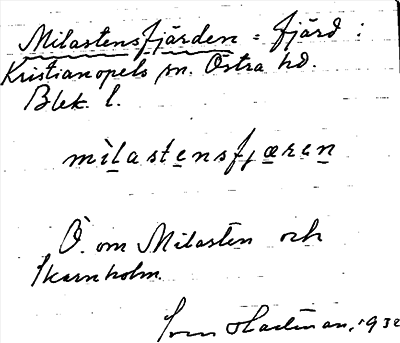 Milastensfjärden = fjärd i
Kristianopels sn. Östra hd.
Blek. l.
mìlastensfjæren
Ö. om Milasten och
Skarnholm.
Sven Hartman, 1932